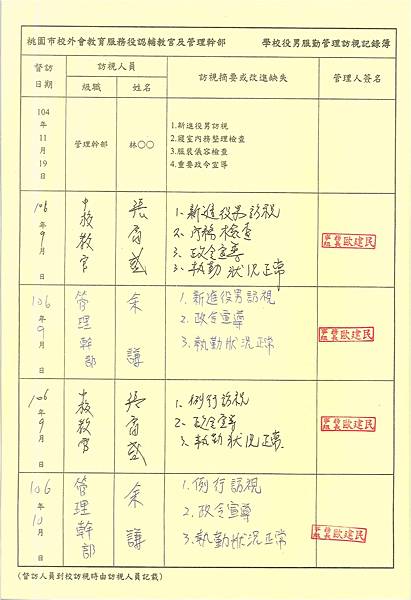 桃園市校外會教育服務役認輔教官及管理幹部 學校役男服勤管理訪視記錄簿
督訪日期 訪視人員 訪視摘要或改進缺失 管理人簽名
級職 姓名
104年11月19日 管理幹部 林〇〇
1.新進役男訪視
2.寢室內務整理檢查
3.服裝儀容檢查
4.重要政令宣導
106年9月 日 中校教官 張
1、新進役男訪視
2、內務檢查
3、政令宣導
3、執勤狀況正常
歐建民
106年9月 日 管理幹部 余謙
1.新進役男訪視
2.政令宣導
3.執勤狀況正常
歐建民
106年9月 日 中校教官 張
1、例行訪視
2、政令宣導
3、執勤狀況正常
歐建民
106年10月 日 管理幹部 余謙
1.例行訪視
2.政令宣導
3.執勤狀況正常
歐建民
(督訪人員到校訪視時由訪視人員記載)